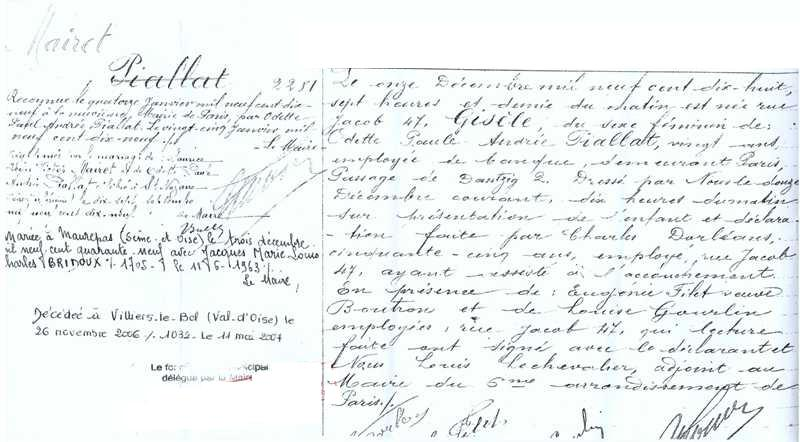 Mairet
Piallat
2251
Reconnue le quatorze Janvier mil neuf cent dix-
neuf à la neuvième Mairie de Paris, par Odette
Paule Andrée Piallat. Le vingt-cinq Janvier mil
neuf cent dix-neuf ./.
Le Maire
mariage de Maurice
Mairet et de Odette Paule
Andrée Piallat
mil neuf cent dix-neuf
Le Maire
Mariée à Maurepas (Seine-et-Oise) le trois décembre
mil neuf cent quarante-neuf avec Jacques Marie Louis
Charles BRIDOUX ./. 1705 - le 11-6-1963 ./.
Le Maire,
Décédée à Villiers-le-Bel (Val-d'Oise) le
26 novembre 2006 ./. 1032 - Le 11 mai 2007
délégué par le Maire
Le onze Décembre mil neuf cent dix-huit,
sept heures et demie du matin est née rue
Jacob 47, Gisèle, du sexe féminin de:
Odette Paule Andrée Piallat, vingt ans,
employée de banque, demeurant Paris,
Passage de Dantzig 2. Dressé par Nous le douze
Décembre courant, dix heures du matin
sur présentation de l'enfant et déclara-
tion faite par Charles Dorléans,
cinquante-cinq ans, employé, rue Jacob
47, ayant assisté à l'accouchement.
En présence de: Eugénie Filet veuve
Boutron et de Louise Gourlin
employées, rue Jacob 47, qui lecture
faite ont signé avec le déclarant et
Nous Louis Lechevalier, adjoint au
Maire du 6me arrondissement de
Paris ./.